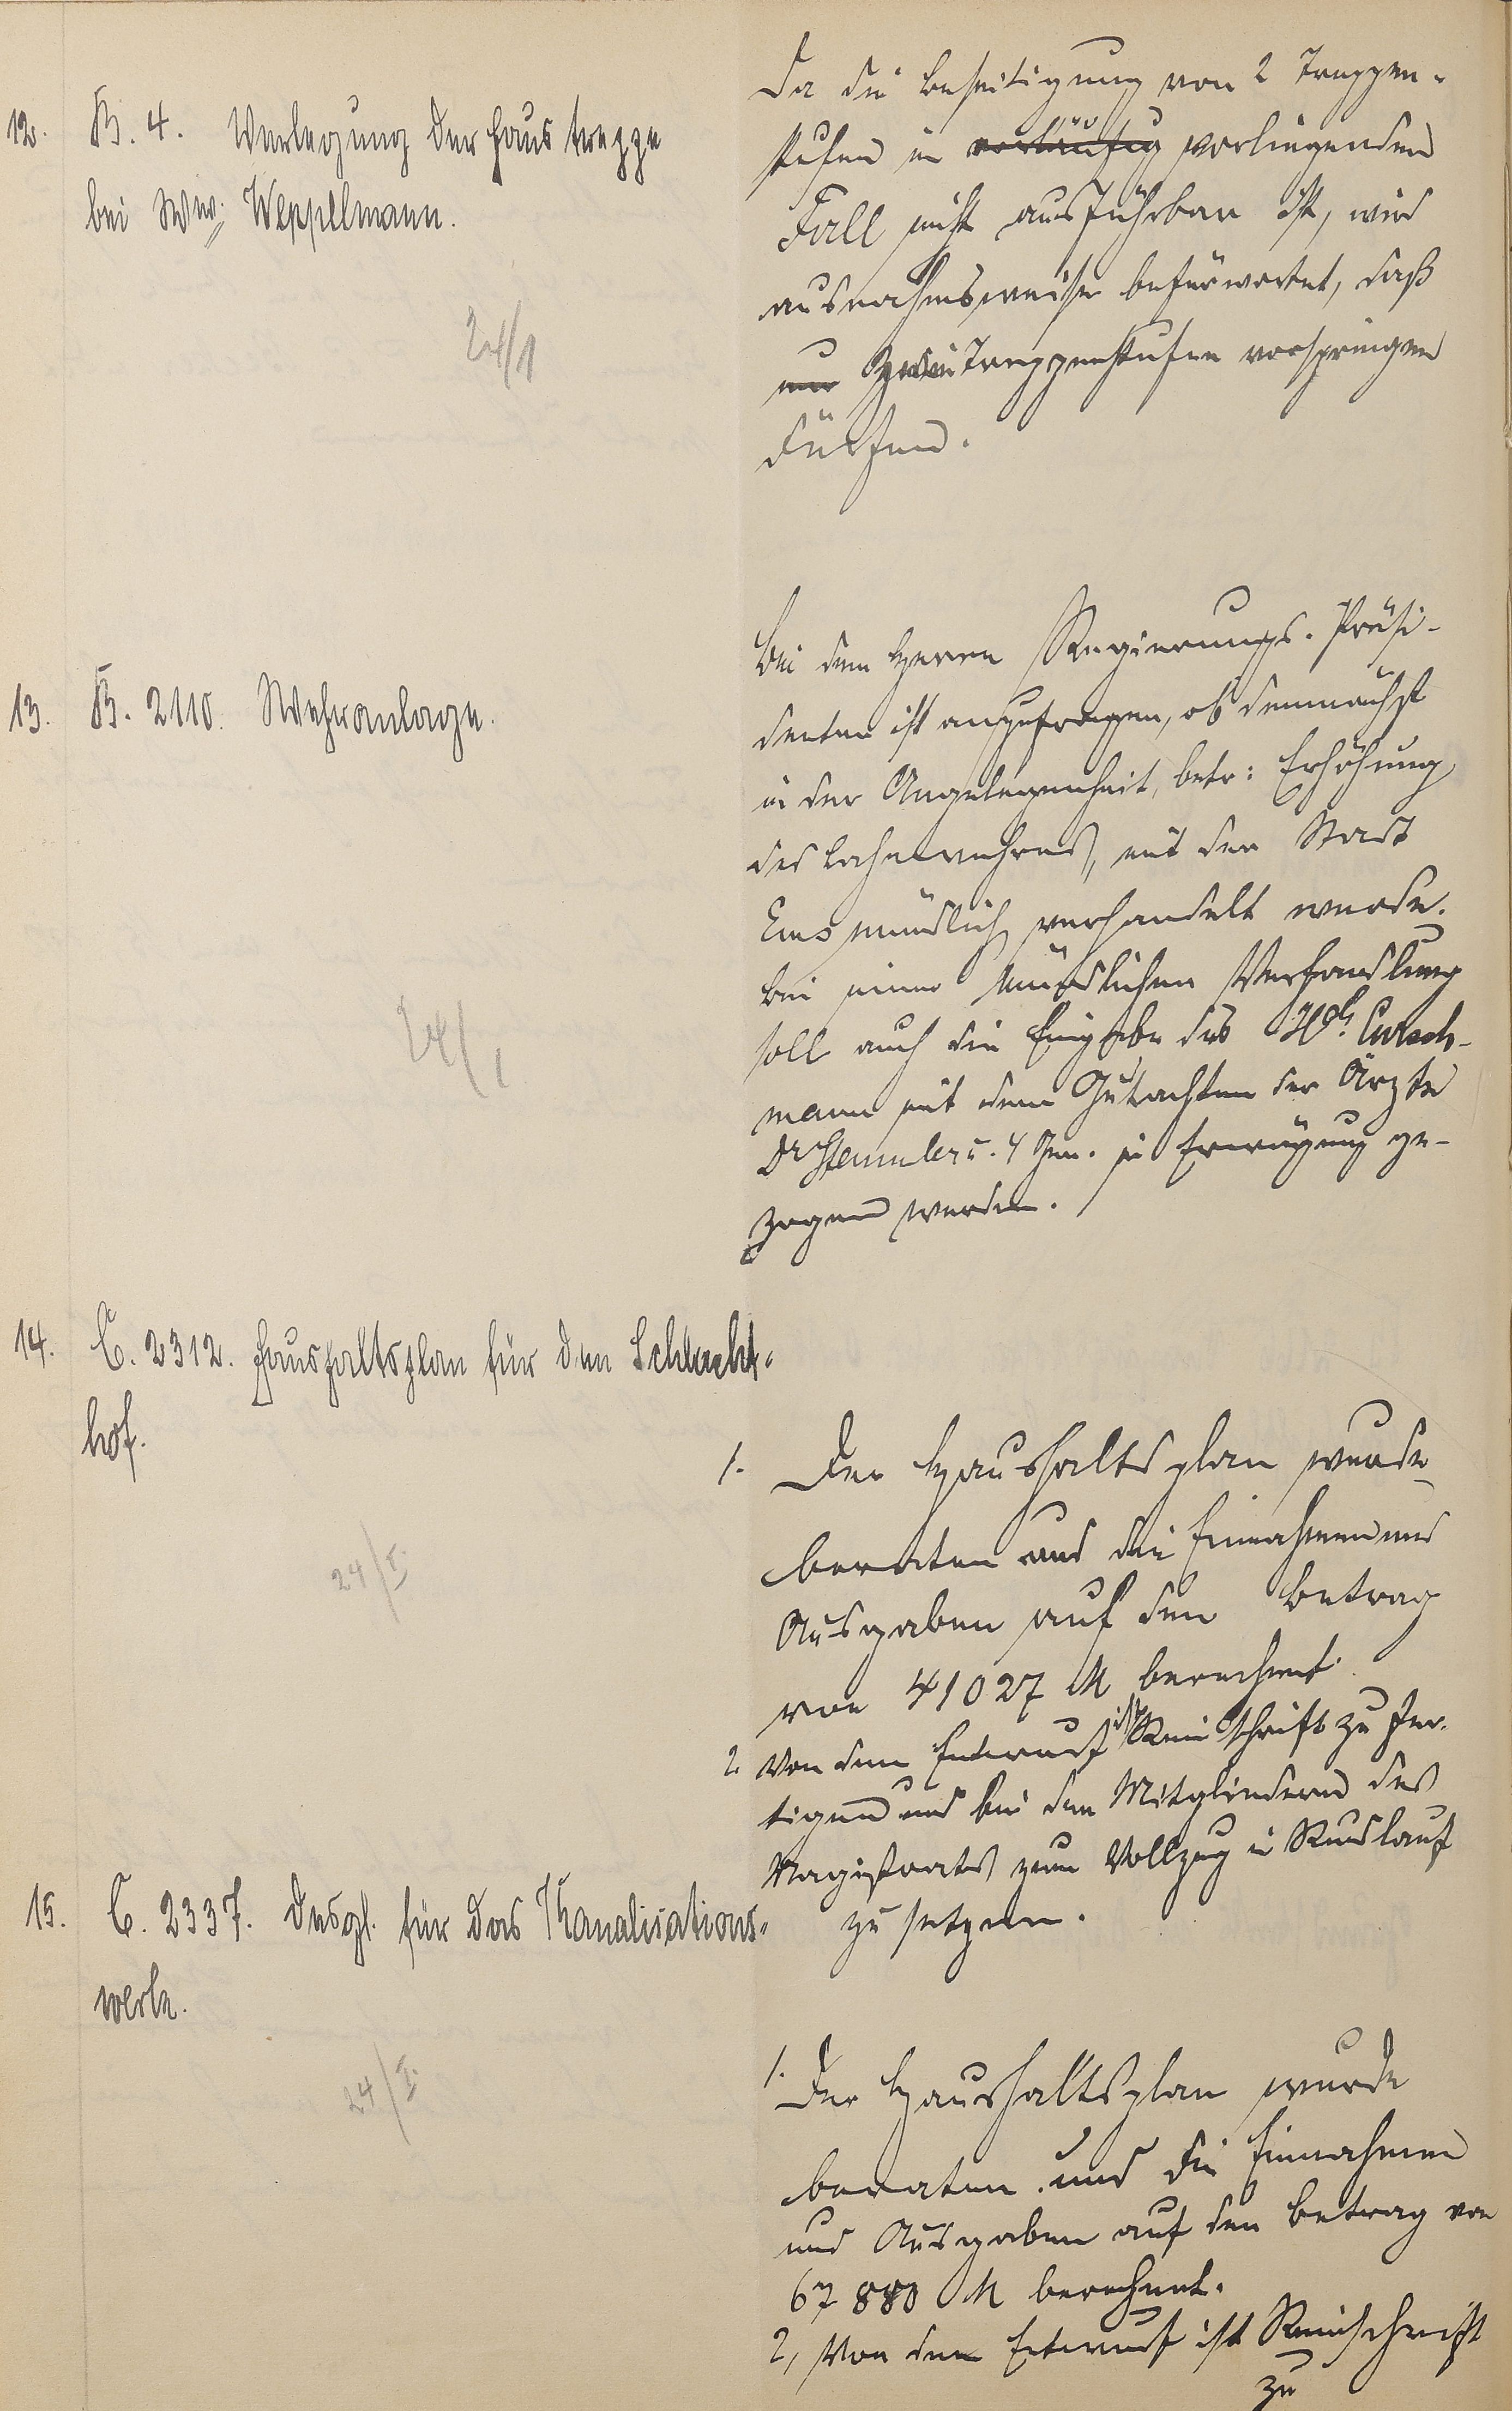 12. B. 4. Verlegung der Haustreppe
bei Ww. Weppelmann.
24/1
Da die Beseitigung von 2 Treppen-
stufen in vorläufig vorliegenden
Fall nicht ausführbar ist, wird
ausnahmsweise befürwortet, daß
nur zwei Treppenstufen vorspringen
dürfen.
13. B. 2110. Wehranlage.
24/1
Bei dem Herrn Regierungs-Präsi-
denten ist anzufragen, ob demnächst
in der Angelegenheit, betr: Erhöhung
des Lahnwehres, mit der Stadt
Ems mündlich verhandelt werde.
Bei einer mündlichen Verhandlung
soll auch die Eingabe des Hch. Cursch-
mann mit dem Gutachten der Ärzte
Dr Stemmler u. 4 Gen. in Erwägung ge-
zogen werden.
14. C. 2312. Haushaltsplan für den Schlacht-
hof.
24/I.
1. Der Haushaltsplan wurde
beraten und die Einnahmen und
Ausgaben auf den Betrag
von 41027 M berechnet.
2. Von dem Entwurf ist Reinschrift zu fer-
tigen und bei den Mitgliedern des
Magistrats zum Vollzug in Rundlauf
zu setzen.
15. C. 2337. Desgl. für das Kanalisations-
werk.
24/I.
1. Der Haushaltsplan wurde
beraten und die Einnahmen
und Ausgaben auf den Betrag von
67 880 M berechnet.
2, Von dem Entwurf ist Reinschrift
zu